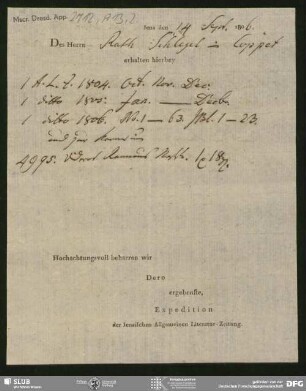 Mscr. Dresd. App. 2712, A13,2
Jena den 14 Sept. 1806.
Des Herrn Rath Schlegel in Coppet
erhalten hierbey
1 A.L.Z. 1804. Oct. Nov. Dec.
1 ditto 1805. Jan. — Decb.
1 ditto 1806. No. 1 — 63. 1 — 23.
und
4995.
Hochachtungsvoll beharren wir
Dero
ergebenste,
Expedition
der Jenaischen Allgemeinen Literatur-Zeitung.
SLUB
DFG